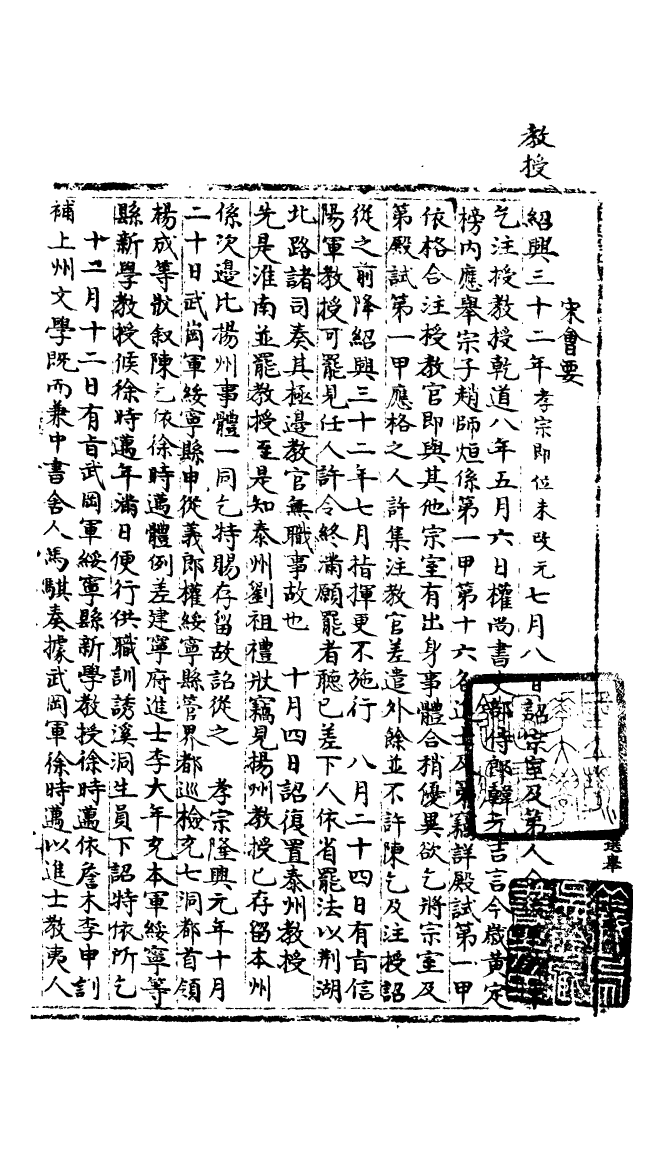 教授
宋會要
紹興三十二年孝宗即位未改元七月八日詔宗室及第人
乞注授教授乾道八年五月六日權尚書吏部侍郎韓元吉言今歲黃定
榜内應舉宗子趙師烜係第一甲第十六名進士及第竊詳殿試第一甲
依格合注授教官即與其他宗室有出身事體合稍優異欲乞將宗室及
第殿試第一甲應格之人許集注教官差遣外餘並不許陳乞及注授詔
從之前降紹興三十二年七月指揮更不施行 八月二十四日有㫖信
陽軍教授可罷見任人許令終滿願罷者聽已差下人依省罷法以荆湖
北路諸司奏其極邊教官無職事故也 十月四日詔復置泰州教授
先是淮南並罷教授至是知泰州劉祖禮狀竊見揚州教授已存留本州
係次邊比楊州事體一同乞特賜存留故詔從之 孝宗隆興元年十月
二十日武崗軍綏寧縣申從義郎權綏寧縣管界都巡檢充七洞都首領
楊成等狀叙陳乞依徐時邁體例差建寧府進士李大年充本軍綏寧等
縣新學教授候徐時邁年滿日便行供職訓誘溪洞生員下詔特依所乞
十二月十二日有㫖武岡軍綏寧縣新學教授徐時邁依詹木李申訓
補上州文學既而兼中書舍人馬騏奏據武岡軍徐時邁以進士教夷人
選舉